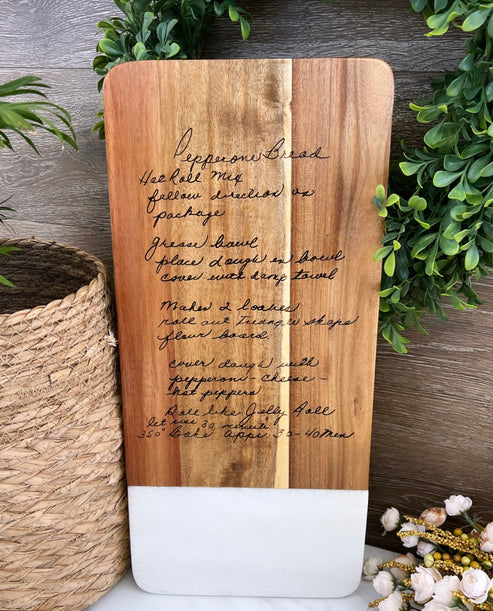 Pepperone Bread
Hot Roll Mix
follow direction on
package
grease bowl
place dough in bowl
cover with damp towel
Makes 2 loaves
roll out Triangle shape
flour board
cover dough with
pepperoni - cheese -
hot peppers
Roll like Jelly Roll
let rise 30 minutes
350° bake appx 30-40 min